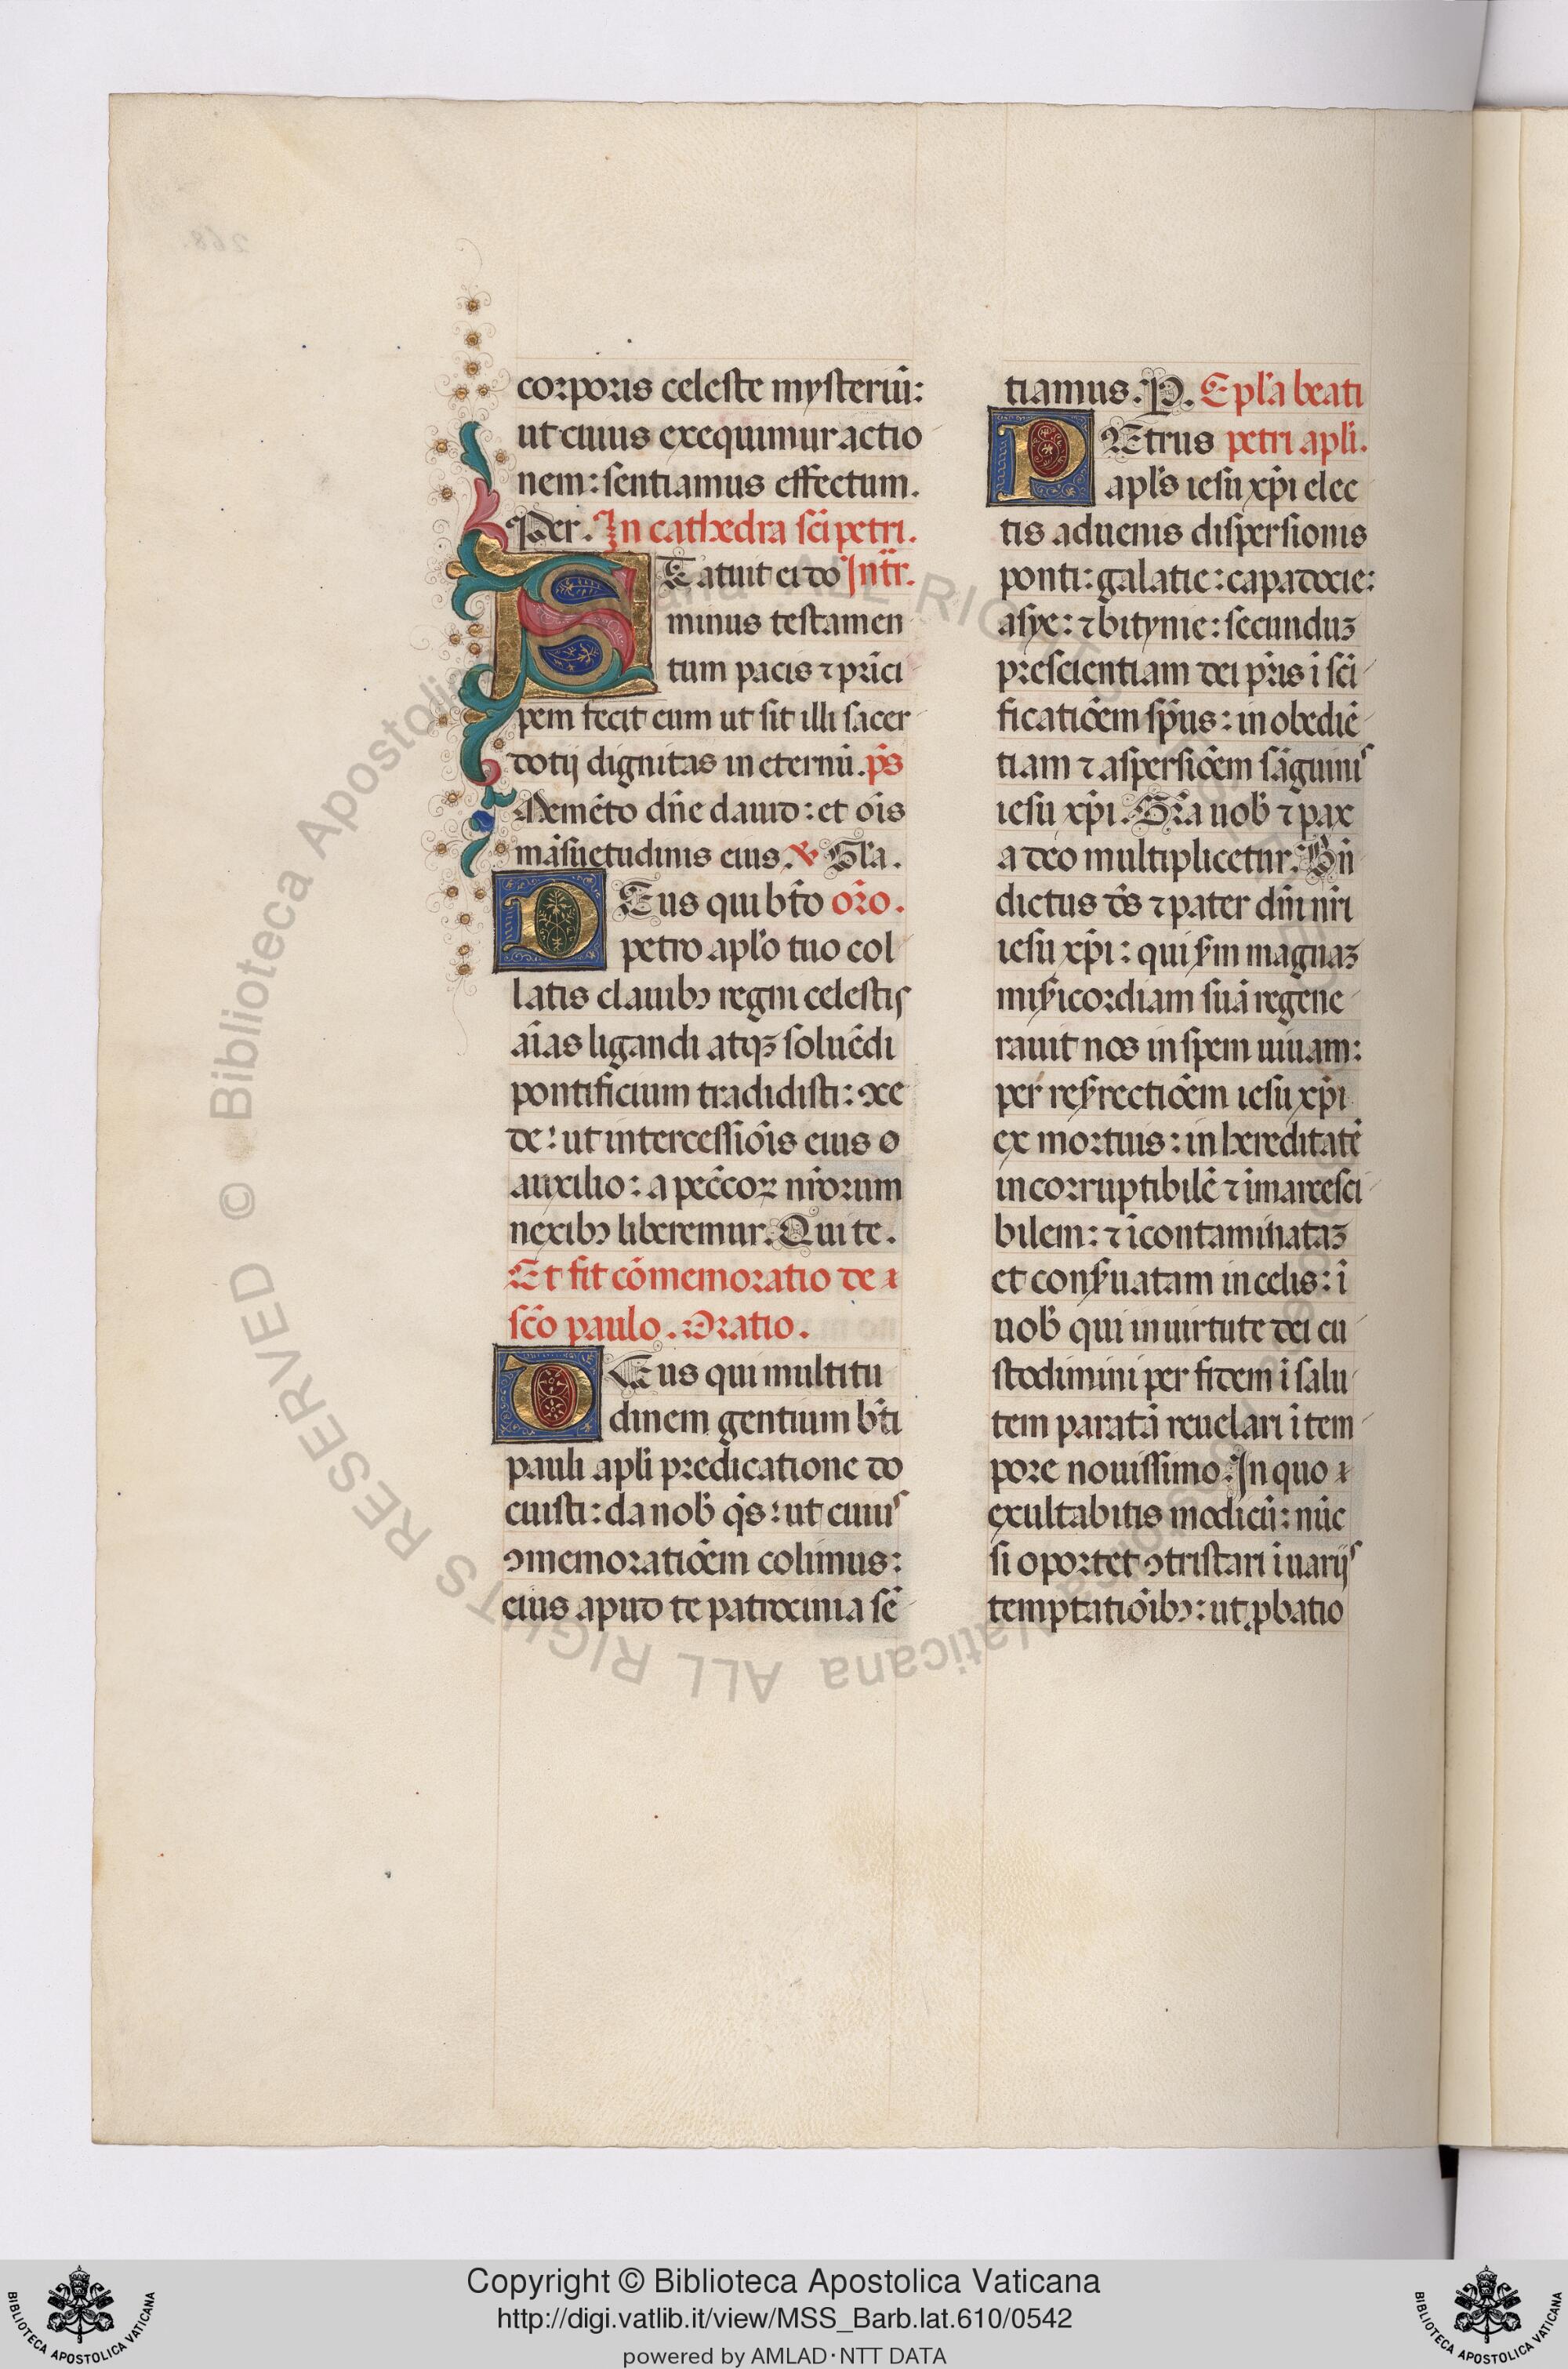 corporis celeste mysteriū:
ut cuius exequimur actio
nem: sentiamus effectum.
Per. In cathedra sc̄i petri.
STatuit ei do Intr̄.
minus testamen
tum pacis ⁊ prīci
pem fecit eum ut sit illi sacer
dotij dignitas in eternū. p̄s
Memēto dn̄e dauid: et oīs
māsuetudinis eius. ℣ Gl̄a.
DEus qui b̄to or̄o.
petro apl̄o tuo col
latis clauibꝫ regni celestis
aīas ligandi atqꝫ soluēdi
pontificium tradidisti: ꝯce
de: ut intercessiōis eius o
auxilio: a pec̄coꝝ nr̄orum
nexibꝫ liberemur. Qui te.
Et fit cōmemoratio de
sc̄o paulo. Oratio.
DEus qui multitu
dinem gentium b̄ti
pauli apl̄i predicatione do
cuisti: da nob̄ q̄s: ut cuius
ꝯmemoratiōem colimus:
eius apud te patrocinia sē
tiamus. P. Epl̄a beati
PEtrus petri apl̄i.
apl̄s iesu xp̄i elec
tis aduenis dispersionis
ponti: galatie: capadocie:
asye: ⁊ bitynie: secunduꝫ
prescientiam dei pr̄is ī sc̄i
ficatiōem sp̄us: in obediē
tiam ⁊ aspersiōem sāguinis
iesu xp̄i. Gr̄a uob̄ ⁊ pax
a deo multiplicetur. Bn̄
dictus d̄s ⁊ pater dn̄i nr̄i
iesu xp̄i: qui s̄m magnaꝫ
mis̄icordiam suā regene
rauit nos in spem uiuam:
per res̄rectiōem iesu xp̄i
ex mortuis: in hereditatē
incorruptibilē ⁊ īmarcesci
bilem: ⁊ īcontaminataꝫ
et cons̄uatam in celis: ī
uob̄ qui in uirtute dei cu
stodimini per fidem ī salu
tem paratā reuelari ī tem
pore nouissimo. In quo
exultabitis modicū: nūc
si oportet ꝯtristari ī uarijs
temptatiōibꝫ: ut ꝓbatio
© Biblioteca Apostolica Vaticana ALL RIGHTS RESERVED
Copyright © Biblioteca Apostolica Vaticana
http://digi.vatlib.it/view/MSS_Barb.lat.610/0542
powered by AMLAD·NTT DATA
BIBLIOTECA APOSTOLICA VATICANA
BIBLIOTECA APOSTOLICA VATICANA